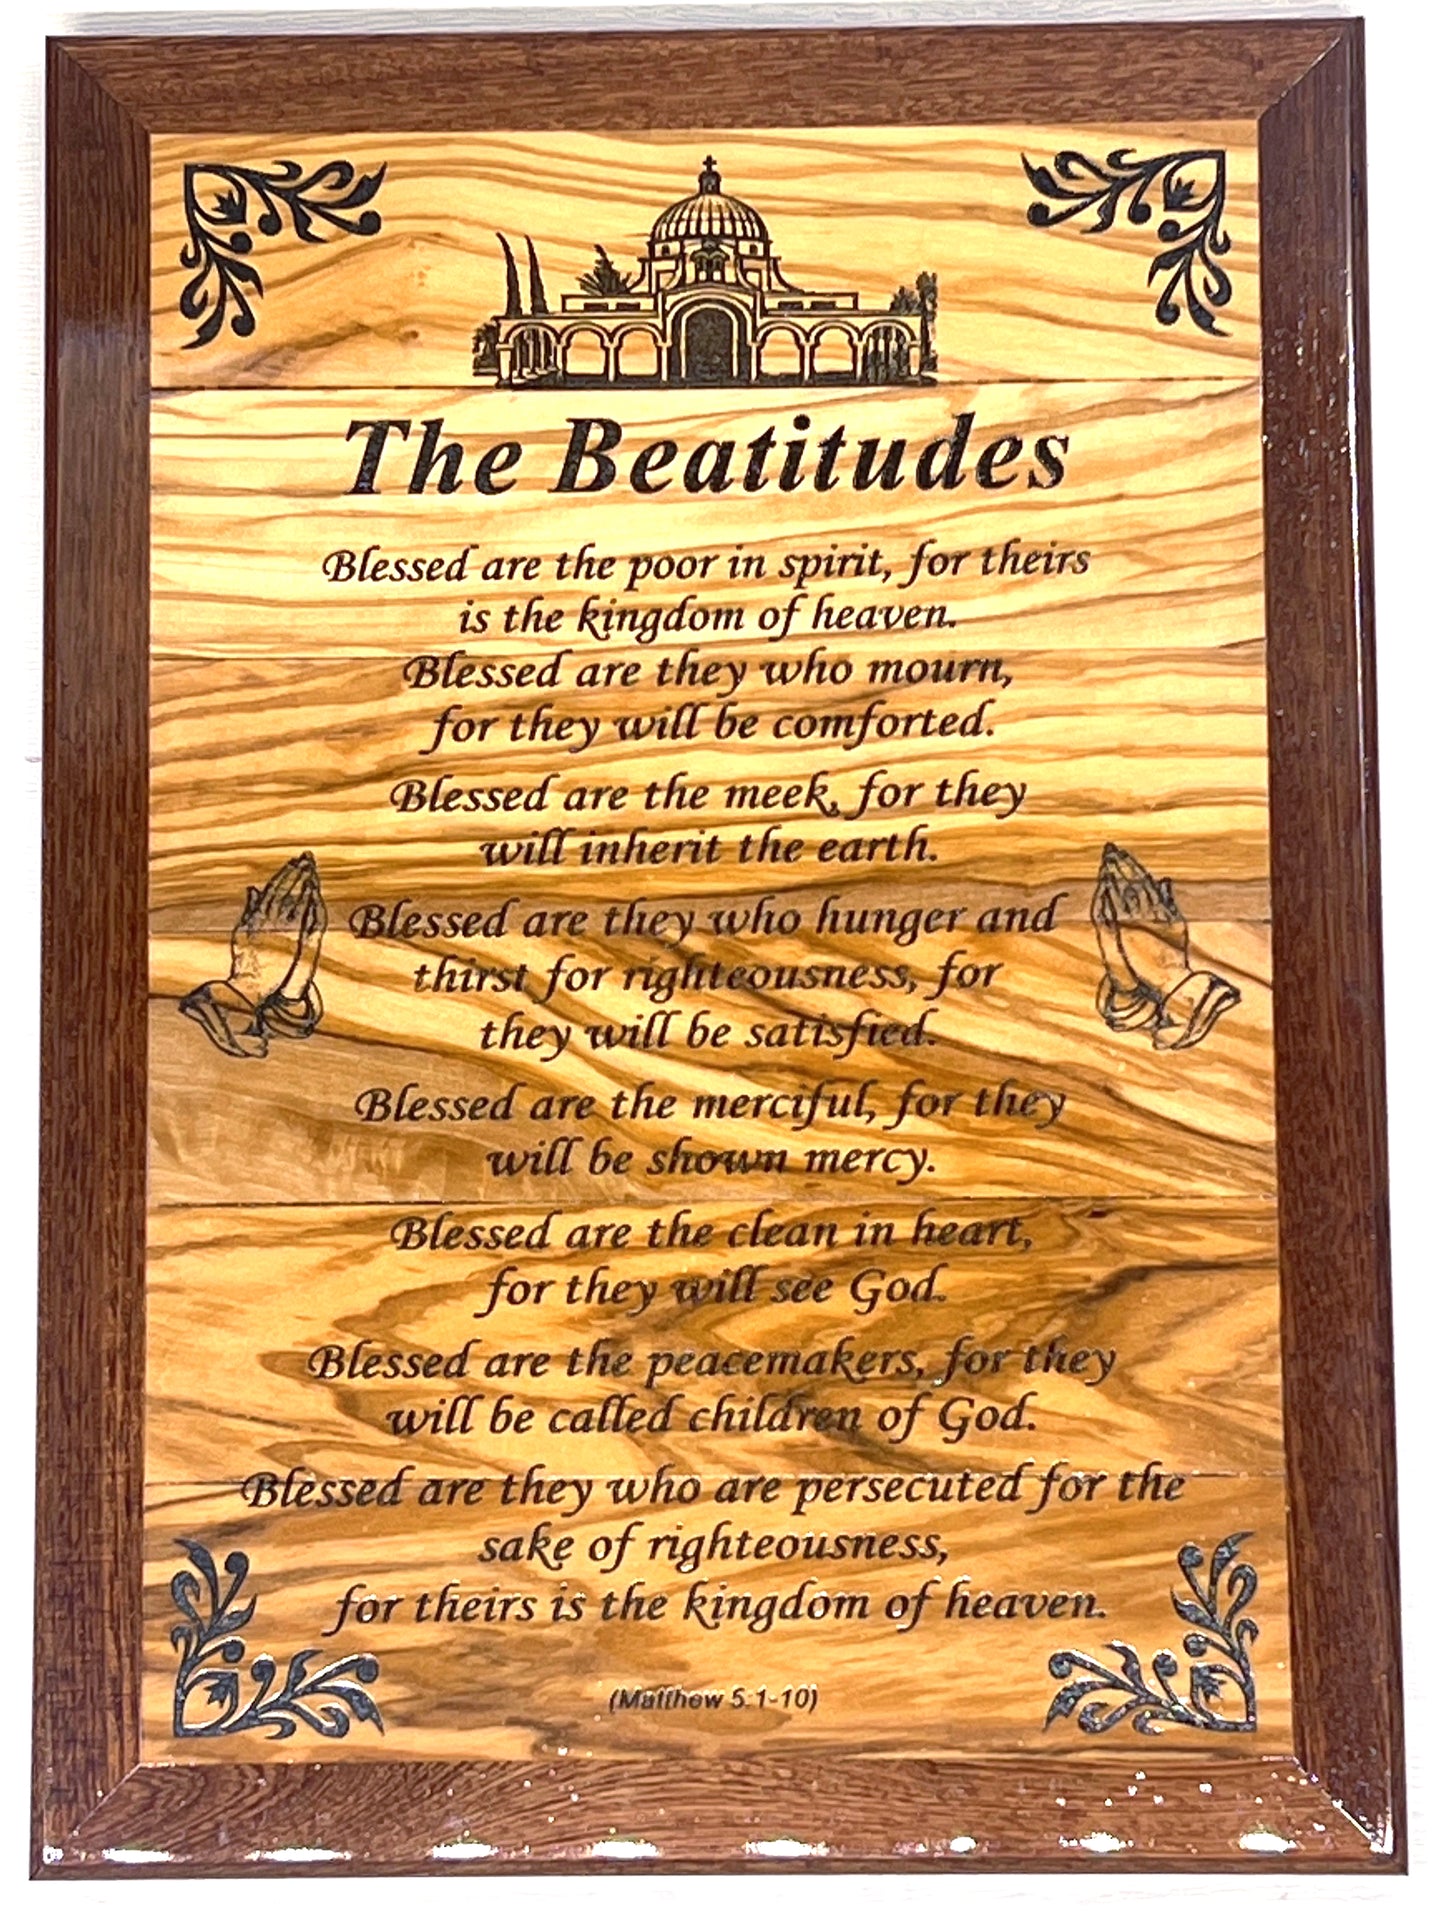 The Beatitudes
Blessed are the poor in spirit, for theirs
is the kingdom of heaven.
Blessed are they who mourn,
for they will be comforted.
Blessed are the meek, for they
will inherit the earth.
Blessed are they who hunger and
thirst for righteousness, for
they will be satisfied.
Blessed are the merciful, for they
will be shown mercy.
Blessed are the clean in heart,
for they will see God.
Blessed are the peacemakers, for they
will be called children of God.
Blessed are they who are persecuted for the
sake of righteousness,
for theirs is the kingdom of heaven.
(Matthew 5:1-10)